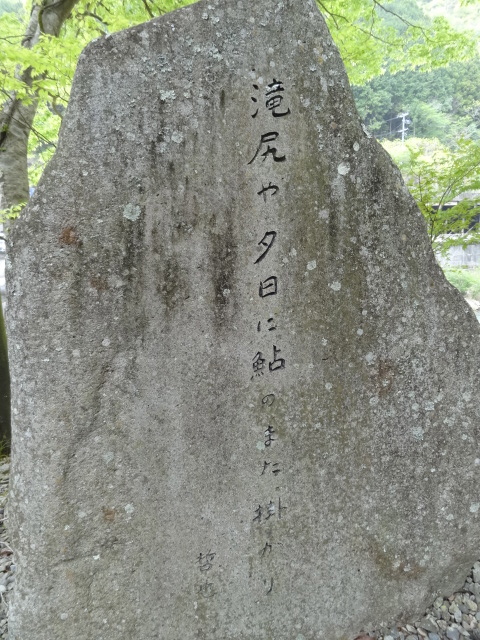 滝尻や夕日に鮎のまた掛かり